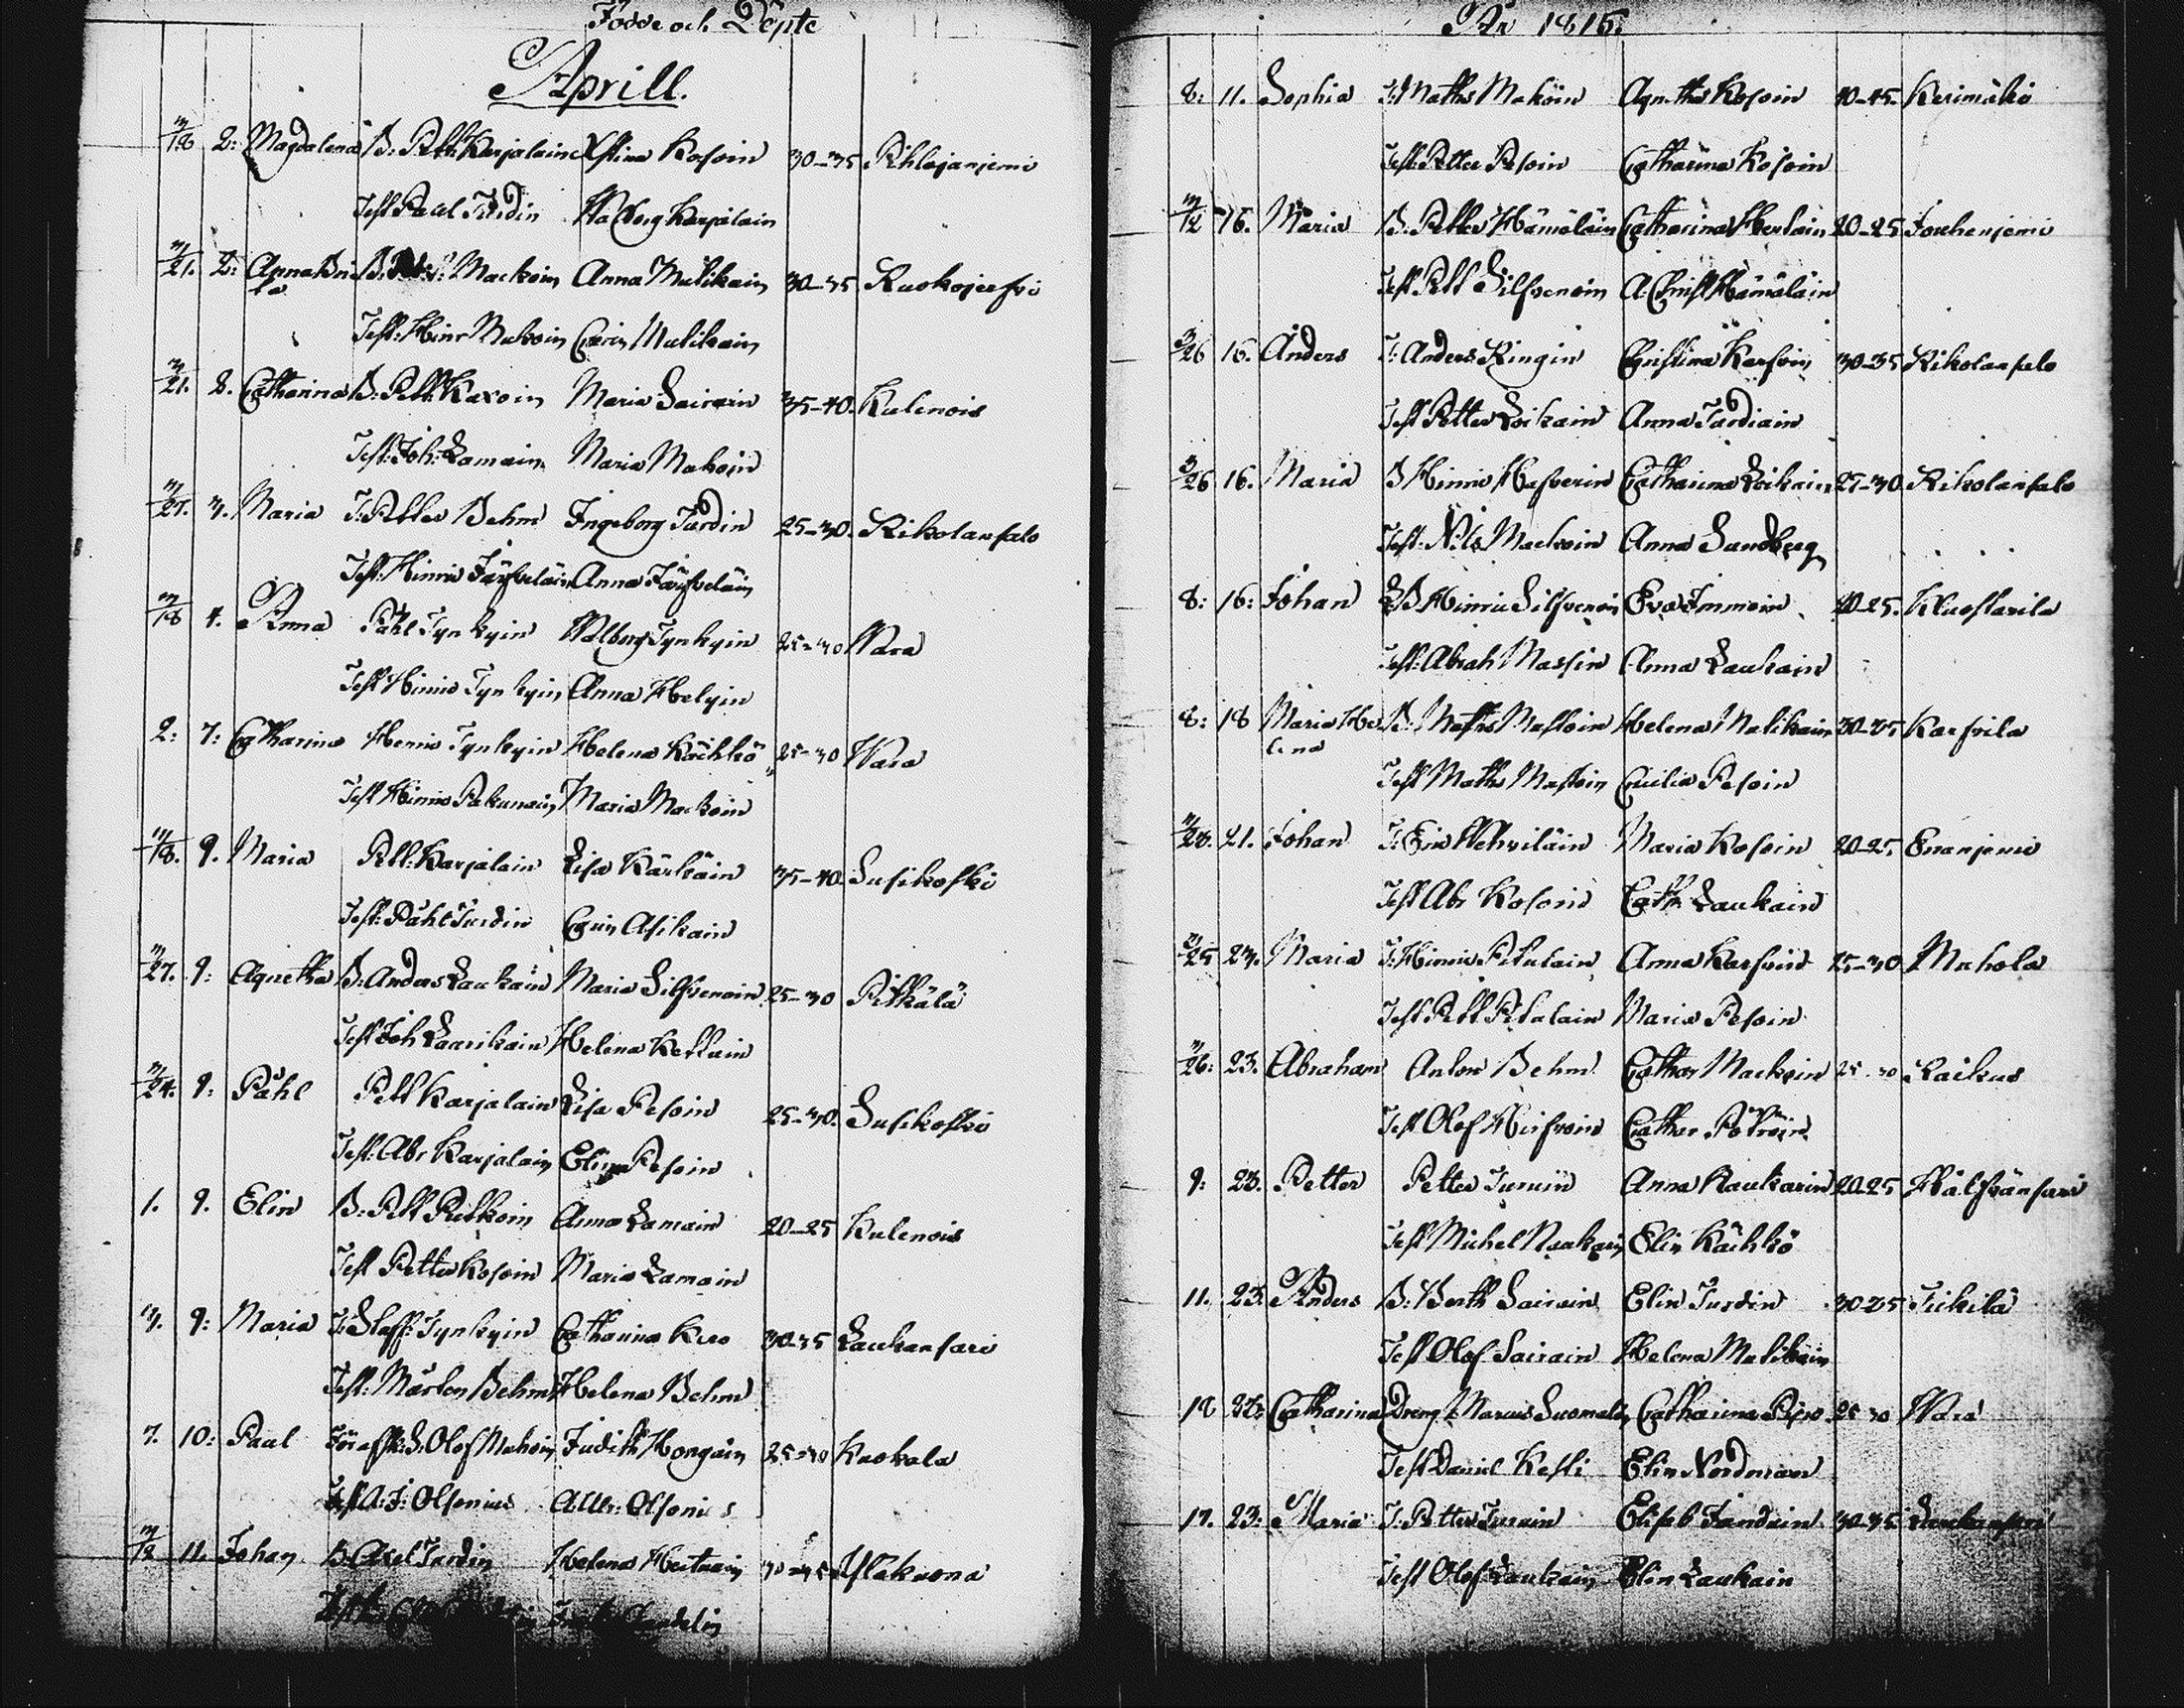 Födde och Döpte
Aprill.
3/18 2: Magdalena B. Pett. Karjalain Xstina Kosoin 30-35
Test Paul Turdin Walborg Karjalain
3/21. 2: Anna Bri B. Mackoin Anna Mulikain 30-35 Ruokojerfvi
ta
Test: Hinr Makoin Carin Mulikain
3/21. 8. Catharina B. Pett: Karoin Maria Sairain 35-40. Kulenois
Test: Joh: Lamain Maria Makoin
3/27. 3. Maria T: Petter Behm Ingeborg Turdin 25-30. Rikolansalo
Test: Hinric Järfveläin Anna Järfveläin
3/18 4. Anna Påhl Tynkyin Walborg Tynkyin 25-30 Wara
Test Hinric Tynkyin Anna Helyin
2: 7: Catharina Henric Tynkyin Helena Kächkö 25-30 Wara
Test Hinric Pakunain Maria Mackoin
3/18. 9. Maria Pett: Karjalain Lisa Kärkäin 35-40 Susikoski
Test: Påhl Turdin Carin Asikain
3/27. 9: Agnetha B: Anders Laukain Maria Silfvenoin 25-30 Pitkälä
Test Joh Laarikain Helena Kettuin
3/24. 9: Påhl Pett Karjalain Lisa Pesoin 25-30. Susikoski
Test: Abr Karjalain Elin Pesoin
1. 9. Elin B: Pett Putkoin Anna Lamain 20-25 Kulenois
Test Petter Kosoin Maria Lamain
3. 9: Maria T: Staff: Tynkyin Catharina Kiro 30-35 Laukansari
Test: Mårten Behm Helena Behm
7. 10: Paul Olof Makoin Judith Hongain 25-30 Kuokala
Test A: J: Olsonius Olsonius
3/12 11. Johan B: Axel Turdin Helena Hertuain
År 1815.
8: 11. Sophia T: Maths Makoin Agnetha Kosoin 40-45. Kerimäki
Test: Petter Pesoin Catharina Kosoin
3/12 16. Maria B. Petter Hämäläin Catharina 20-25 Jouhenjemi
Test Pett Silfvenoin A: Christ Hämäläin
3/26 16. Anders T: Anders Ringin Christina Karfvin 30-35 Rikolansalo
Test Petter Loikain Anna Tardiain
3/26 16. Maria B Hinric Hafverin Catharina Loikain 27-30. Rikolansalo
Test: Nils Mackoin Anna Sandberg
8: 16: Johan Hinric Silfvenoin Eva Immoin 40-25.
Test: Abrah Massin Anna Laukain
8: 18 Maria He B: Maths Mastoin Helena Malikain Karfvila
lena
Test Maths Mastoin Cecilia Pesoin
21. Johan T: Eric Wehviläin Maria Kosoin 20-25 Enanjemi
Test Abr Kosoin Cath Laukain
3/25 23. Maria T: Hinric Pitulain Anna Karfvin 25-30 Muhola
Test Pett Pitulain Maria Pesoin
3/26: 23. Abraham Anton Behm Cathar Mackoin 25-30 Raikus
Test Olof Hirfvoin Cathar Pöyröin
9: 23. Petter Petter Turuin Anna Raukarin 20-25
Test Michel Elin Kächkö
11. 23. Anders B: Berth Sairain Elin Turdin Tiikila
Test Olof Sairain Helena Malikain
18 Catharina Dreng Marcus Suomalain Catharina 25-30 Wara
Test Daniel Kesti Elin Nordman
17. 23: Maria T: Petter Turuin Elisab Jandain 30-35 Laukansari
Test Olof Laukain Elin Laukain